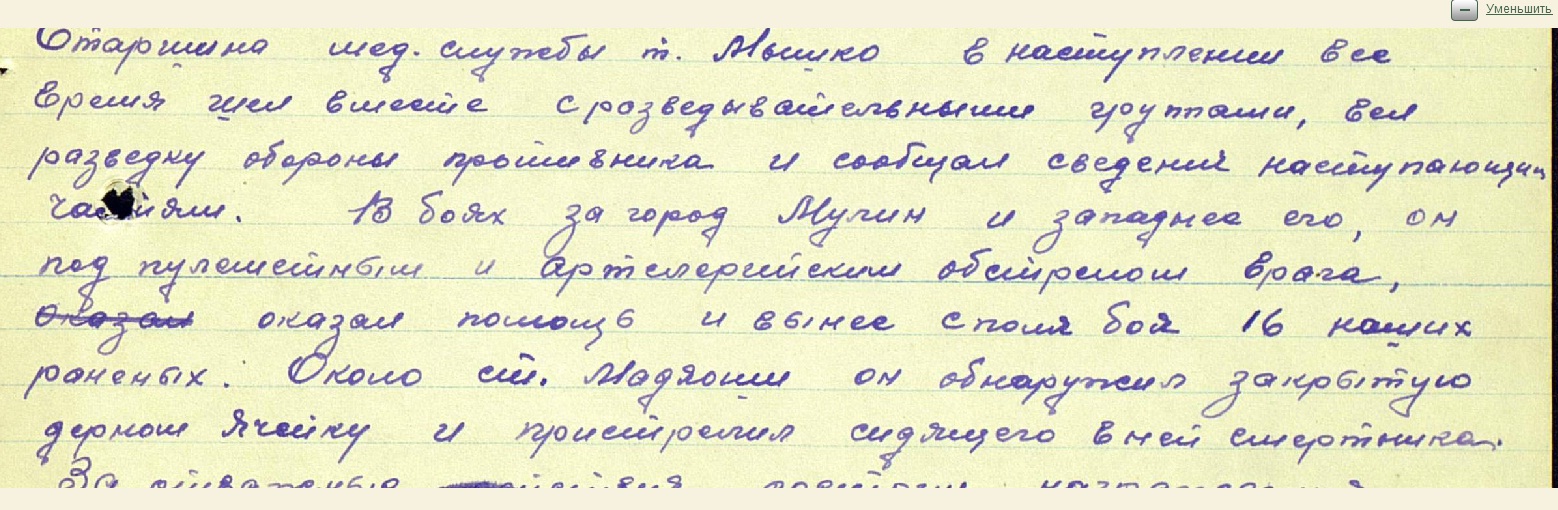 Уменьшить
Старшина мед. службы т. Мышко в наступлении все
время шел вместе с разведывательными группами, вел
разведку обороны противника и сообщал сведений наступающим
частями. В боях за город Мулин и западнее его, он
под пулеметным и артелерийским обстрелом врага,
оказал оказал помощь и вынес с поля боя 16 наших
раненых. Около ст. Мадяоши он обнаружил закрытую
дерном ячейку и пристрелил сидящего в ней смертника.
За